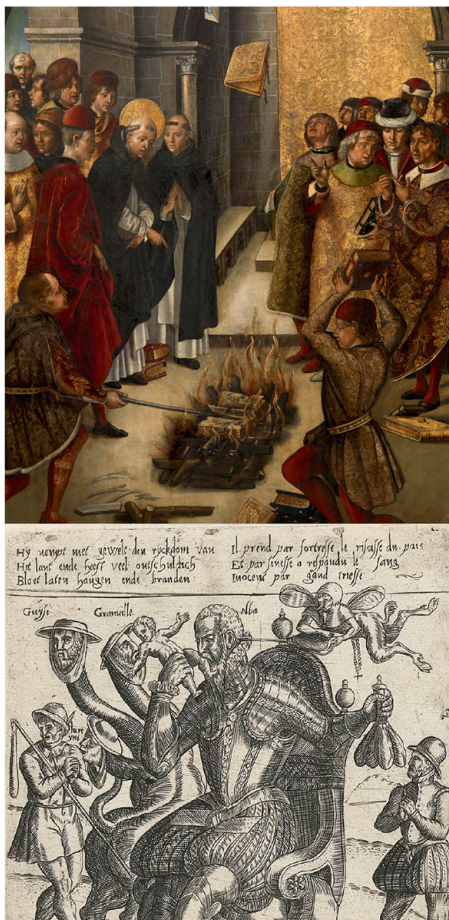 Hÿ nempt met gewelt den ryckdom van
Het lant ende heeft veel ontschuldich
Bloet laten hangen ende branden
Il prend par fortresse le risaise du pais
Et par finesse a respandu le sang
Inocent par gand triesse
Guysi
Granuille
Alba